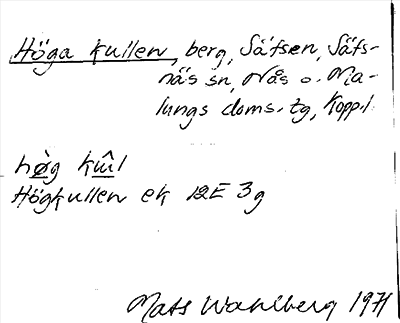 Höga kullen, berg, Säfsen, Säfs-
näs sn, Nås o. Ma-
lungs doms. tg, Kopp.l
hø̀g kɯ̂l
Högkullen ek 12E 3g
Mats Wahlberg 1971